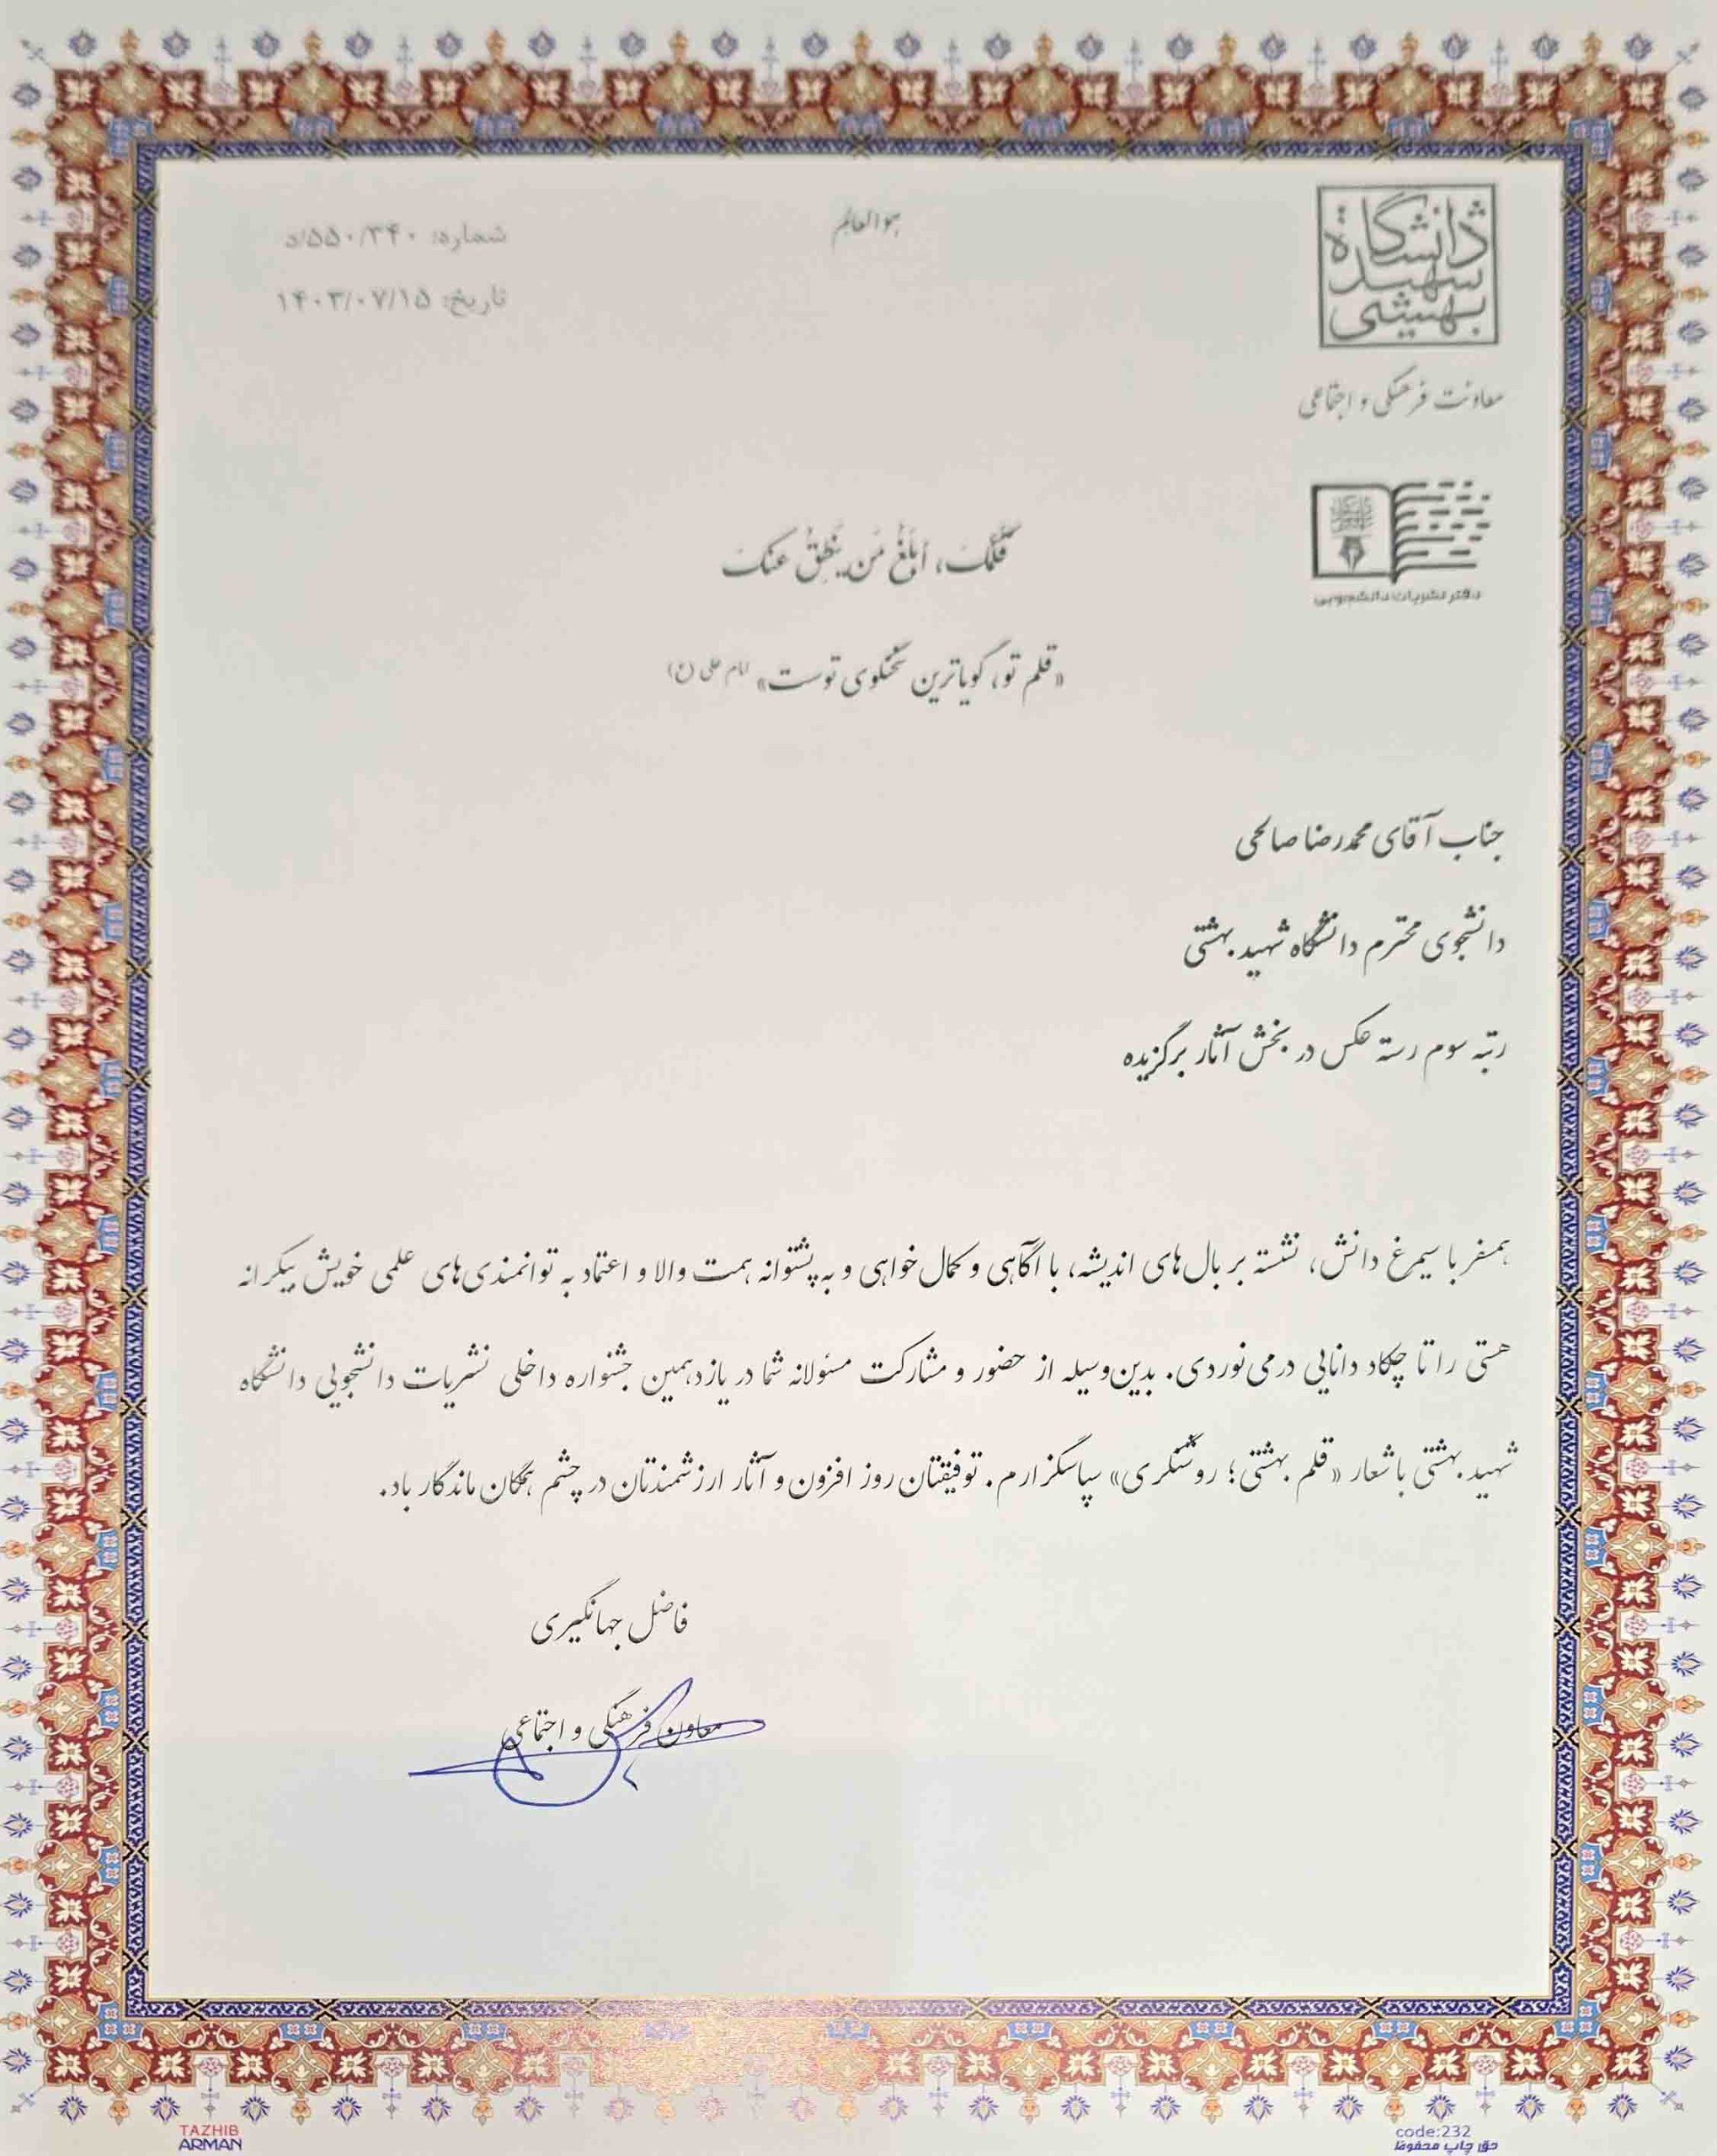 هوالعالم
شماره: ۵۵۰/۳۴۰/د
تاریخ: ۱۴۰۳/۰۷/۱۵
دانشگاه
شهید
بهشتی
معاونت فرهنگی و اجتماعی
دفتر نشریات دانشجویی
قَلَمُكَ، أبلَغُ مَن يَنطِقُ عَنكَ
«قلم تو، گویاترین سخنگوی توست» امام علی (ع)
جناب آقای محمدرضا صالحی
دانشجوی محترم دانشگاه شهید بهشتی
رتبه سوم رسته عکس در بخش آثار برگزیده
همسفر با سیمرغ دانش، نشسته بر بال‌های اندیشه، با آگاهی و کمال‌خواهی و به پشتوانه همت والا و اعتماد به توانمندی‌های علمی خویش بیکرانه
هستی را تا چکاد دانایی درمی‌نوردی. بدین‌وسیله از حضور و مشارکت مسئولانه شما در یازدهمین جشنواره داخلی نشریات دانشجویی دانشگاه
شهید بهشتی با شعار «قلم بهشتی؛ روشنگری» سپاسگزارم. توفیقتان روز افزون و آثار ارزشمندتان در چشم همگان ماندگار باد.
فاضل جهانگیری
معاون فرهنگی و اجتماعی
TAZHIB
ARMAN
code:232
حق چاپ محفوظ